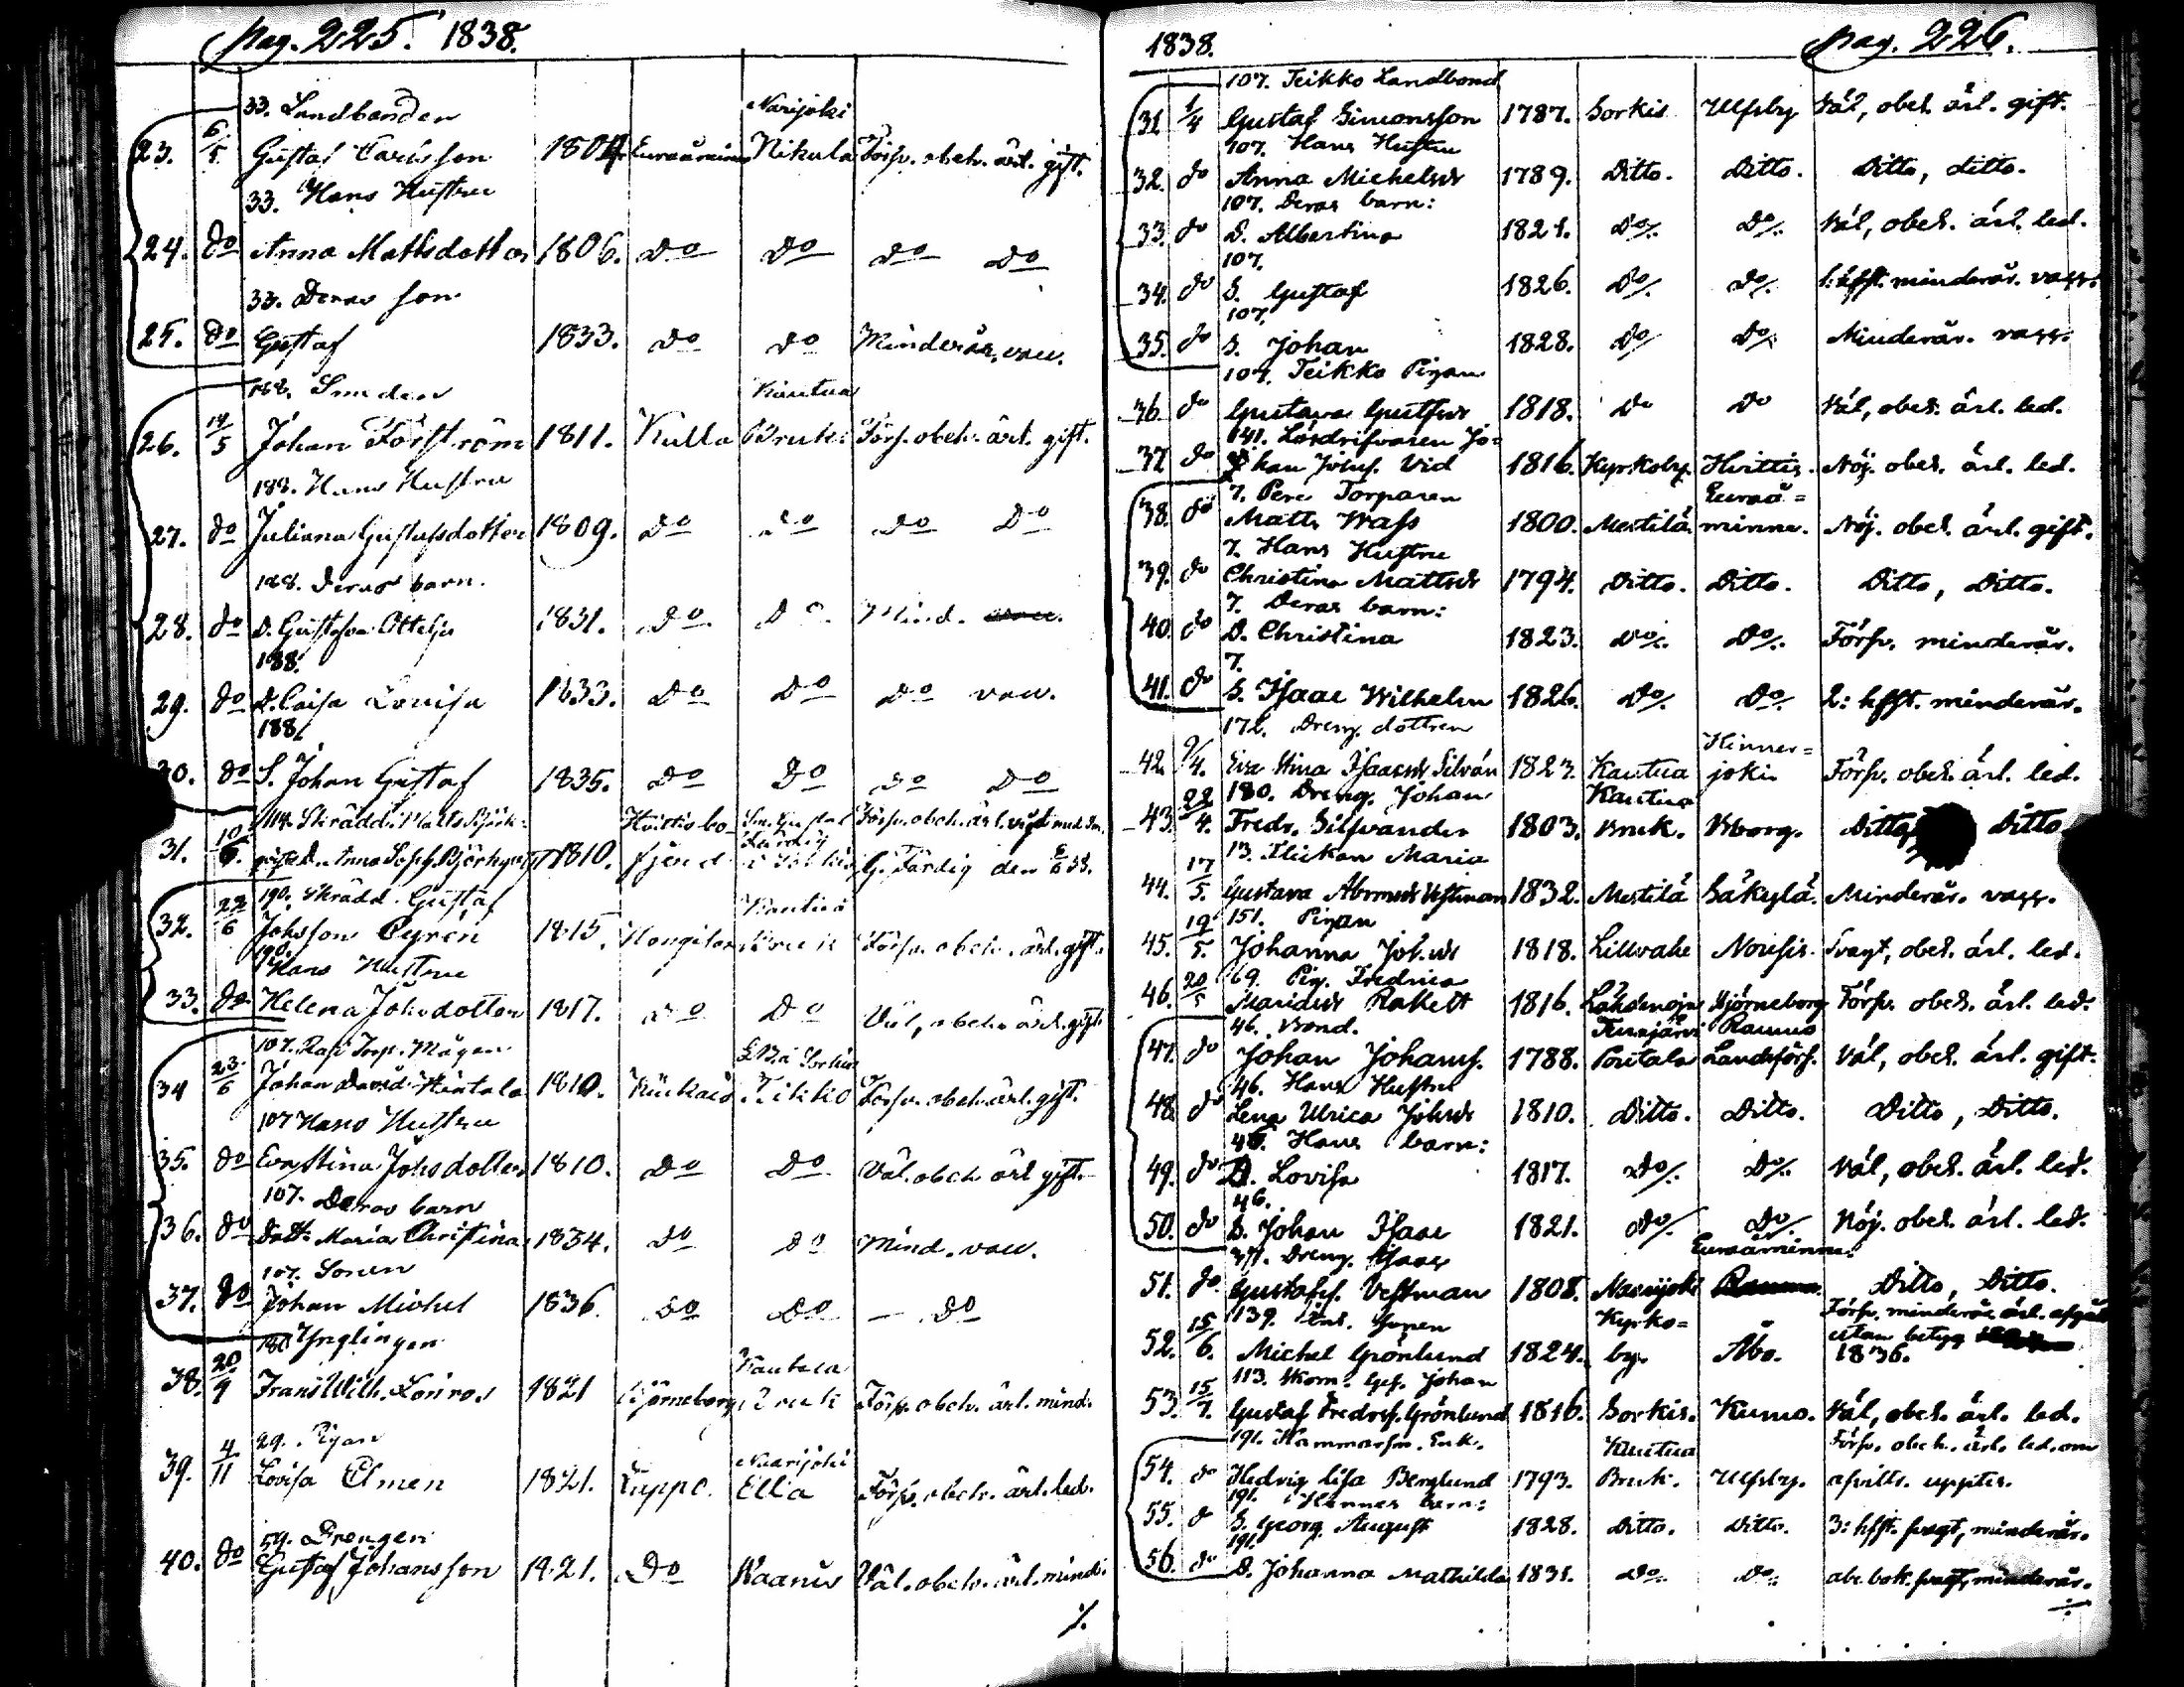 pag. 225. 1838.
33. Landbonden Narijoki
23. 6/5 Gustaf Carlsson Euraåminne Nikula Försv. obeh. ärl. gift.
33. Hans Hustru
24. do Anna Mattsdotter 1806. Do Do Do Do
33. Deras son
25. do Gustaf 1833. Do Do Minderår. vacc.
188. Smeden Kautua
26. 14/5 Johan Forsström 1811. Kulla Bruk Försv. obeh. ärl. gift.
188. Hans Hustru
27. do Juliana Gustafsdotter 1809. Do Do Do Do
188. Deras barn.
28. do D. Gustafva Ottilja 1831. Do Do Mind.
188.
29. do D. Caisa Lovisa 1833. Do Do Do vacc.
188.
30. do S. Johan Gustaf 1835. Do Do Do Do
114. Skrädd. Matts Björk-
31. D. Anna Soph. Björkqvist 1810. Hvittisbo- fjerd G. Färdig den
190. Skrädd. Gustaf Kautua
32. 22/6 Johsson Cyrén 1815. Bruk Försv. obeh. ärl. gift.
190. Hans Hustru
33. do Helena Johsdotter 1817. Do Do Väl, obeh. ärl. gift
107. Torp. Mågen
34 23/6 Johan David Hintala 1810. Kiukais Teikko Försv. obeh. ärl. gift.
107 Hans Hustru
35. do Eva Stina Johsdotter 1810. Do Do Väl. obeh. ärl. gift.
107. Deras barn
36. do Dott. Maria Christina 1834. Do Do Mind. vacc.
107. Sonen
37. do Johan Michel 1836. Do Do — Do
180 Ynglingen Kautua
38. 20/9 Frans Wilh. Lönros 1821 Björneborg Bruk Försv. obeh. ärl. mind.
29. Pigan Naarijoki
39. 4/11 Lovisa Elmen 1821. Luppo. Ella Försv. obeh. ärl. led.
59. Drengen
40. do Gustaf Johansson 1821. Do Kaanis Väl. obeh. ärl. mind.
./.
1838. pag. 226.
107. Teikko Landbond
31. 1/4 Gustaf Simonsson 1787. Sorkis Ulfsby Väl, obeh. ärl. gift.
107. Hans Hustru
32. do Anna Michelsdr 1789. Ditto. Ditto. Ditto, ditto.
107. Deras barn:
33. do D. Albertina 1821. Do/. Do/. Väl, obeh. ärl. led.
107.
34. do S. Gustaf 1826. Do/. Do/. 1: hfft. minderår. vacc.
107.
35. do S. Johan 1828. Do/ Do/. Minderår. vacc.
107. Teikko Pigan
36. do Gustava Gustfsdr 1818. Do Do Väl, obeh. ärl. led.
141. Lösdrifvaren Jo=
37. do han Josefs. Vid 1816. Kyrkoby. Hvittis. Nöj. obeh. ärl. led.
7. Pere Torparen Euraå=
38. do Matts Wass 1800. Mestilä minne. Nöj. obeh. ärl. gift.
7. Hans Hustru
39. do Christina Mattsdr 1794. Ditto. Ditto. Ditto, Ditto.
7. Deras barn:
40. do D. Christina 1823. Do/. Do/. Försv. minderår.
7.
41. do S. Isaac Wilhelm 1826. Do/. Do/. 2: hfft. minderår.
172. Dreng. dottren Hinner=
42. 9/4. Eva Stina Isaacsdr Silván 1823. Kautua joki. Försv. obeh. ärl. led.
180. Dreng. Johan Kautua
43. 22/4. Fredr. Silfvander 1803. Bruk. Wborg. Ditto, Ditto
13. Flickan Maria
44. 17/5. Gustava Abrmsdr Vestman 1832. Mestilä Säkylä. Minderår. vacc.
151. Pigan
45. 19/5. Johanna Joh.dr 1818. Lillvahe Nousis. Svagt, obeh. ärl. led.
69. Pig. Fredrica
46. 20/5 Rakett 1816. Björneborg Försv. obeh. ärl. led.
46. Bond. Raumo
47. do Johan Johans. 1788. Poutala Landsförs. Väl, obeh. ärl. gift.
46. Hans Hustru
48. do Lena Ulrica Johsdr 1810. Ditto. Ditto. Ditto, Ditto.
46. Hans barn:
49. do D. Lovisa 1817. Do/. Do/. Väl, obeh. ärl. led.
46.
50. do S. Johan Isaac 1821. Do/. Do/. Nöj. obeh. ärl. led.
37. Dreng. Isaac Euraåminne.
51. do Gustafss. Vestman 1808. Naarijoki Ditto, Ditto.
139. Enk. Sonen Kyrko= Försv. minderår. ärl. afgått
52. 15/6. Michel Grönlund 1824. by. Åbo. utan betyg 1836.
113. Skom. Ges. Johan
53. 15/7. Gustaf Fredrss. Grönlund 1816. Sorkis. Kumo. Väl, obeh. ärl. led.
191. Hammarsm. Enk. Kautua Försv. obeh. ärl. led. om
54. do Hedvig Lisa Berglund 1793. Bruk. Ulfsby. afvitts. upptes.
191. Hennes barn:
55. do S. Georg August 1828. Ditto. Ditto. 3: hfft. svagt, minderår.
191.
56. do D. Johanna Mathilda 1831. Do. Do. abc bok. svagt, minderår.